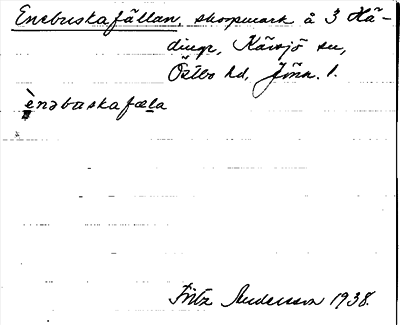 Enebuskafällan, skogsmark å 3 Hä-
dinge, Kävsjö sn,
Östbo hd, Jönk. l.
ènəbuskafæla
Fritz Andersson 1938.